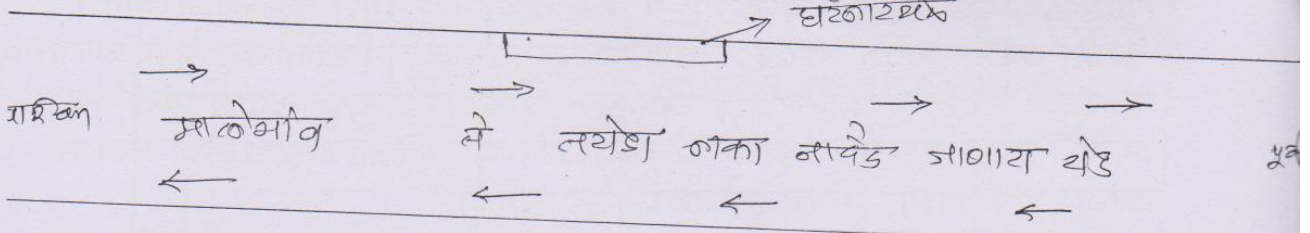 घटनास्थळ
पश्चिम मालेगाव ते तरोडा नाका नांदेड जाणारा रोड पूर्व